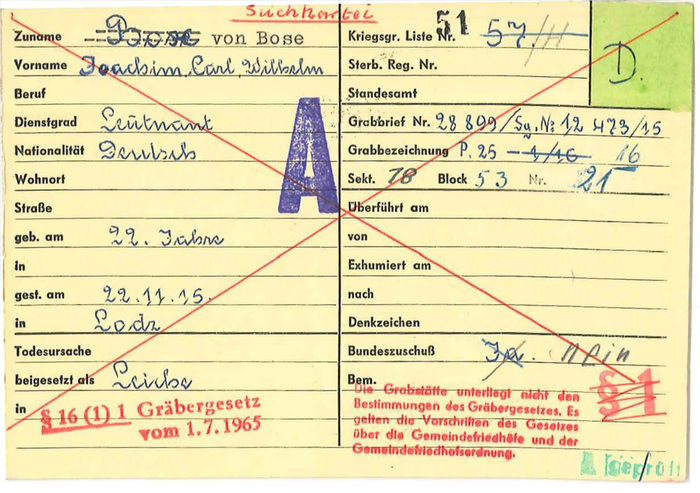 Suchkartei
Zuname Bose von Bose
Vorname Joachim, Carl, Wilhelm
Beruf
Dienstgrad Leutnant
Nationalität Deutsch
Wohnort
Straße
geb. am 22. Jahre
in
gest. am 22.11.15.
in Lodz
Todesursache
beigesetzt als Leiche
in
§ 16 (1) 1 Gräbergesetz
vom 1.7.1965
A
Kriegsgr. Liste Nr. 51 57/11
D.
Sterb. Reg. Nr.
Standesamt
Grabbrief Nr. 28 899/Sg. № 12 473/15
Grabbezeichnung P. 25 - 1/16 16
Sekt. 18 Block 53 Nr. 21
Überführt am
von
Exhumiert am
nach
Denkzeichen
Bundeszuschuß Ja. nein
Bem.
Die Grabstätte unterliegt nicht den
Bestimmungen des Gräbergesetzes. Es
gelten die Vorschriften des Gesetzes
über die Gemeindefriedhöfe und der
Gemeindefriedhofsordnung.
§ 1
A geprüft